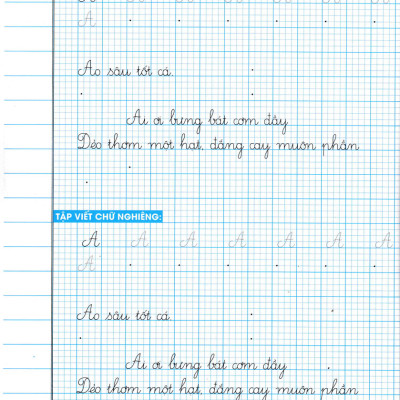 A
Ao sâu tốt cá.
Ai ơi bưng bát cơm đầy
Dẻo thơm một hạt, đắng cay muôn phần
TẬP VIẾT CHỮ NGHIÊNG:
A A A A A A A
A
Ao sâu tốt cá.
Ai ơi bưng bát cơm đầy
Dẻo thơm một hạt, đắng cay muôn phần